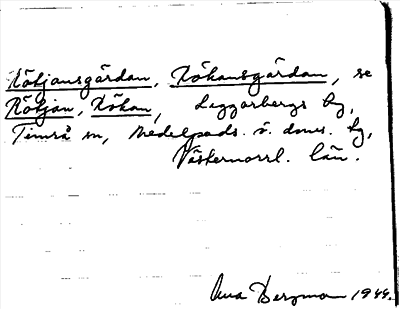 Kökjansgårdan, Kökansgårdan, se
Kökjan, Kökan, Laggarbergs by,
Timrå sn, Medelpads v. doms. hg,
Västernorrl. län.
Ana Bergman 1944.